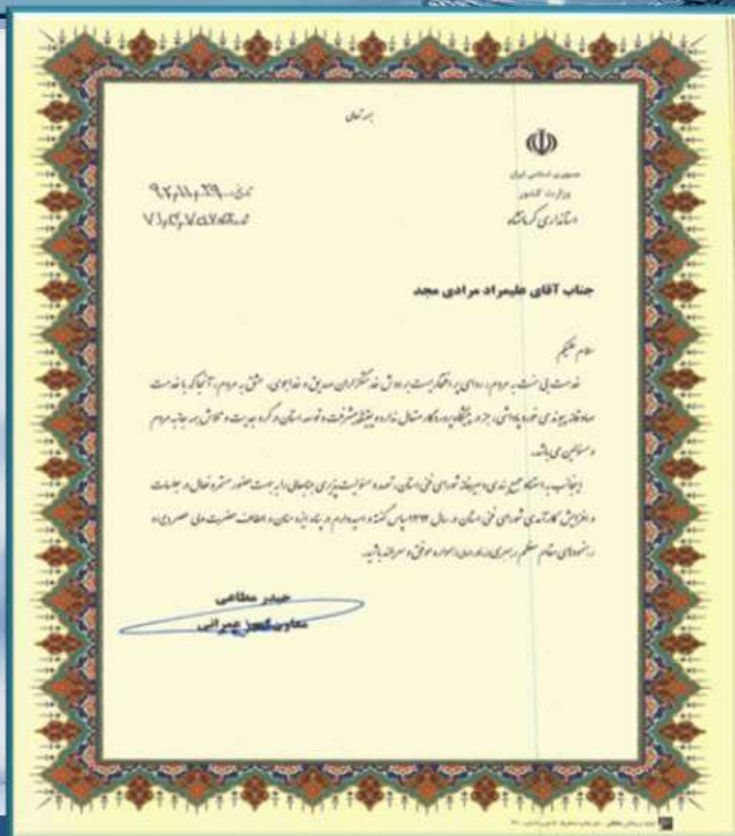 بسمه تعالی
جمهوری اسلامی ایران
وزارت کشور
استانداری کرمانشاه
جناب آقای علیمراد مرادی مجد
سلام علیکم
خدمت بی منت به مردم، ردای پر افتخاریست بر دوش خدمتگزاران صدیق و خداجوی. عشق به مردم، آنجا که با خدمت
صادقانه پیوندی خورد پاداشی، جز در پیشگاه پروردگار متعال ندارد و پیشرفت و توسعه استان در گرو جدیت و تلاش همه جانبه مردم
و مسئولین می باشد.
اینجانب به استناد جمع بندی دبیرخانه شورای فنی استان، تعهد و مسئولیت پذیری جنابعالی را به جهت حضور مستمر و فعال در جلسات
و افزایش کارآمدی شورای فنی استان در سال ۱۳۹۲ سپاس گفته و امیدوارم در پناه ایزد منان و الطاف حضرت ولی عصر (عج) و
رهنمودهای مقام معظم رهبری همواره موفق و سربلند باشید.
حیدر مطاعی
معاون امور عمرانی